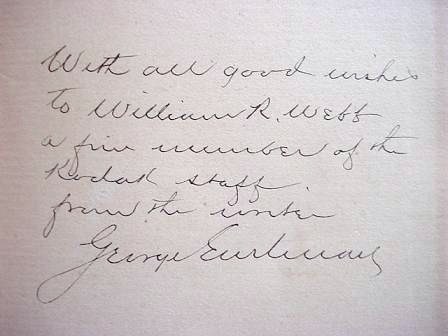 With all good wishes
to William R. Webb
a fine member of the
Kodak staff.
from the writer
George